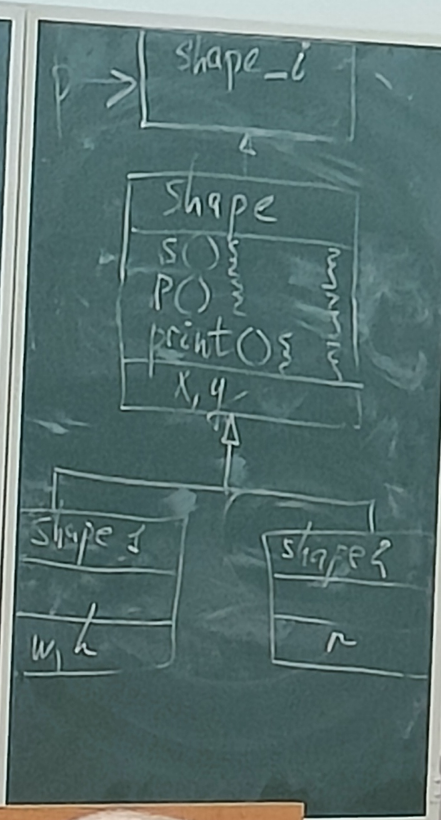 p
shape_i
shape
S()
P()
print()
x, y
shape 1
w, h
shape 2
r